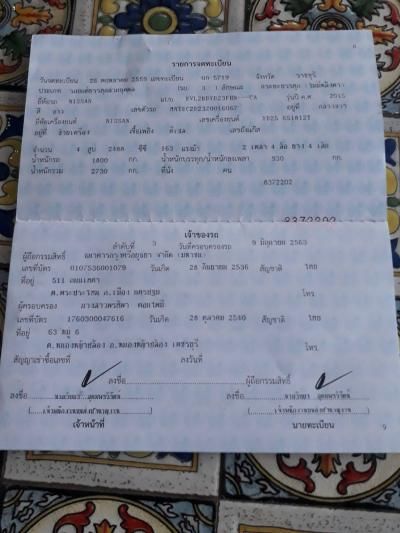 8
รายการจดทะเบียน
วันจดทะเบียน 26 พฤษภาคม 2558 เลขทะเบียน 5719 จังหวัด ราชบุรี
ประเภท รถยนต์บรรทุกส่วนบุคคล (รย. 3 ) ลักษณะ
ยี่ห้อรถ NISSAN แบบ รุ่นปี ค.ศ. 2015
สี ขาว เลขตัวรถ อยู่ที่
ยี่ห้อเครื่องยนต์ NISSAN เลขเครื่องยนต์ YD25
อยู่ที่ ข้างเครื่อง เชื้อเพลิง ดีเซล เลขถังแก๊ส
จำนวน 4 สูบ 2488 ซีซี 163 แรงม้า 2 เพลา 4 ล้อ ยาง 4 เส้น
น้ำหนักรถ 1800 กก. น้ำหนักบรรทุก/น้ำหนักลงเพลา 930 กก.
น้ำหนักรวม 2730 กก. ที่นั่ง คน
8372202
8372202
เจ้าของรถ
ลำดับที่ 3 วันที่ครอบครองรถ 9 มิถุนายน 2563
ผู้ถือกรรมสิทธิ์ ธนาคารกรุงศรีอยุธยา จำกัด (มหาชน)
เลขที่บัตร 0107536001079 วันเกิด 28 กันยายน 2536 สัญชาติ ไทย
ที่อยู่ 511
ต.พระประโทน อ.เมือง นครปฐม โทร.
ผู้ครอบครอง
เลขที่บัตร 1760500047616 วันเกิด 28 ตุลาคม 2540 สัญชาติ ไทย
ที่อยู่ 63 หมู่ 6
ต.หนองหญ้าปล้อง อ.หนองหญ้าปล้อง เพชรบุรี โทร.
สัญญาเช่าซื้อเลขที่ ลงวันที่
ลงชื่อ ผู้ถือกรรมสิทธิ์
ลงชื่อ ลงชื่อ
เจ้าหน้าที่ นายทะเบียน
9